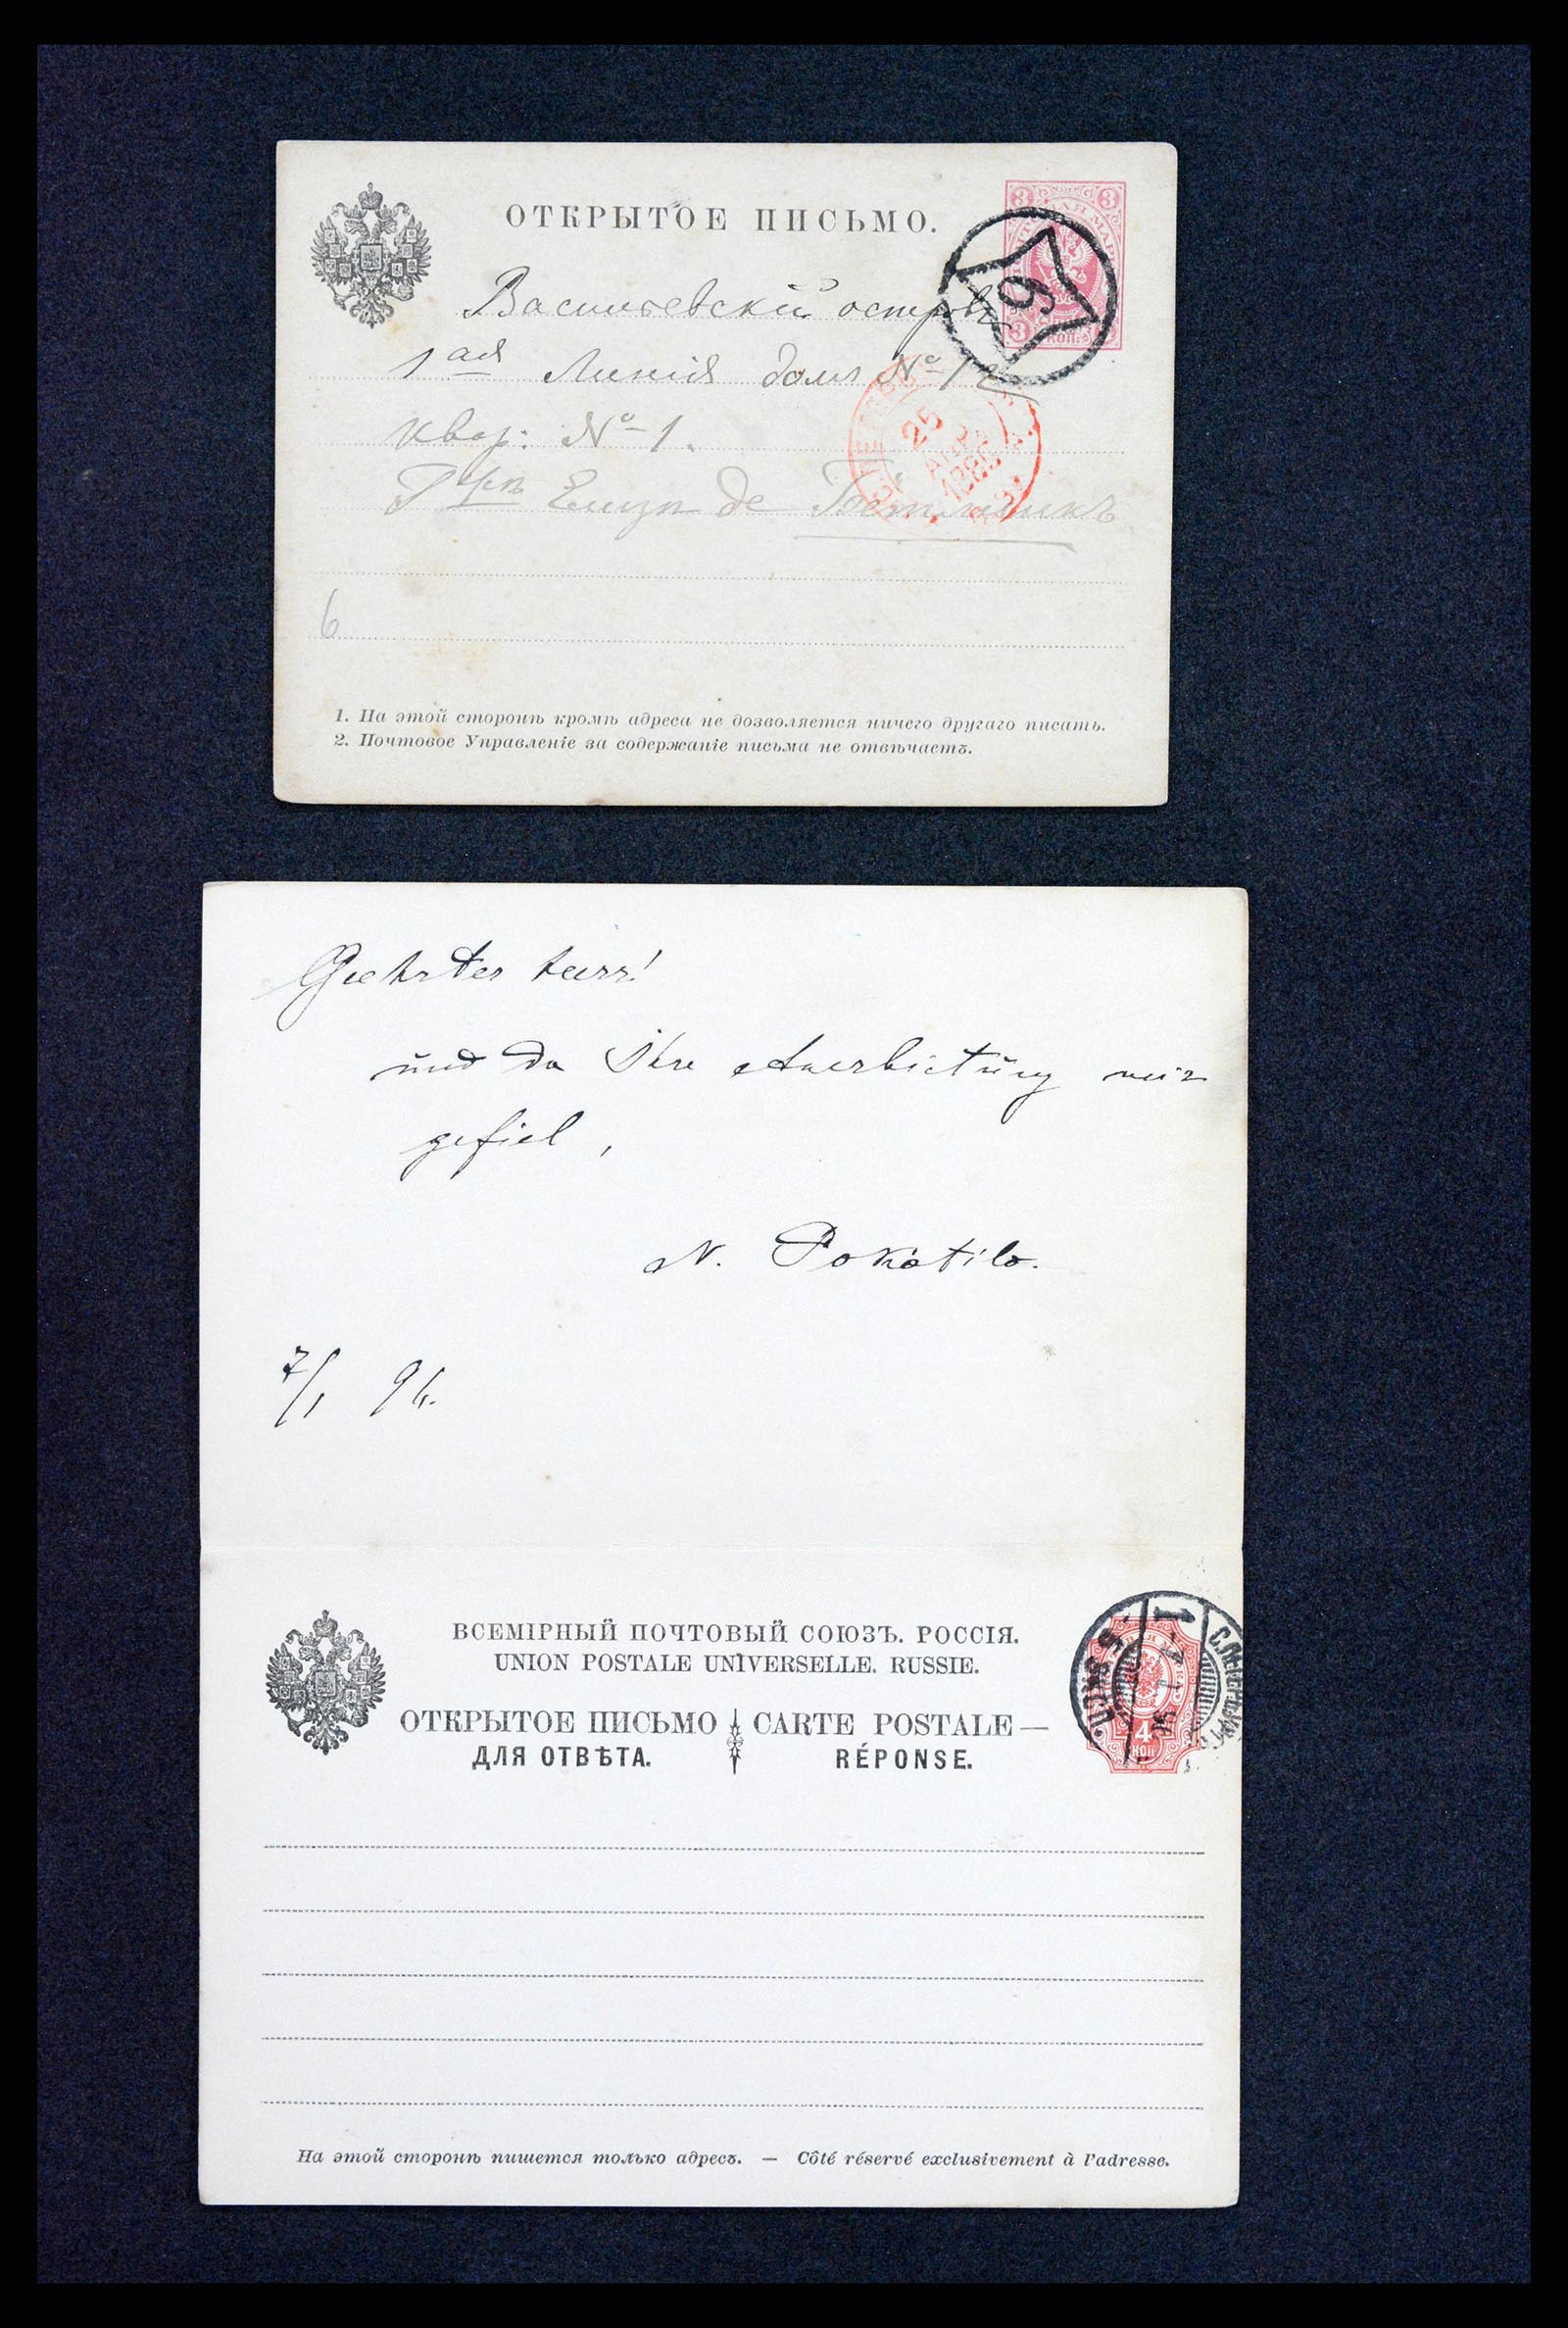 ОТКРЫТОЕ ПИСЬМО.
3 3
Васильевскій островъ
6
1ая Линія домъ № 12
квар: № 1.
25
АПР
де
6
1. На этой сторонѣ кромѣ адреса не дозволяется ничего другаго писать.
2. Почтовое Управленіе за содержаніе письма не отвѣчаетъ.
Geehrter Herr!
und da Ihre Anerbietung mir
gefiel,
N. Pokotilo.
7/1 96.
ВСЕМІРНЫЙ ПОЧТОВЫЙ СОЮЗЪ. РОССІЯ.
UNION POSTALE UNIVERSELLE. RUSSIE.
ОТКРЫТОЕ ПИСЬМО CARTE POSTALE —
ДЛЯ ОТВѢТА. RÉPONSE.
4
КОП
На этой сторонѣ пишется только адресъ. — Côté réservé exclusivement à l'adresse.